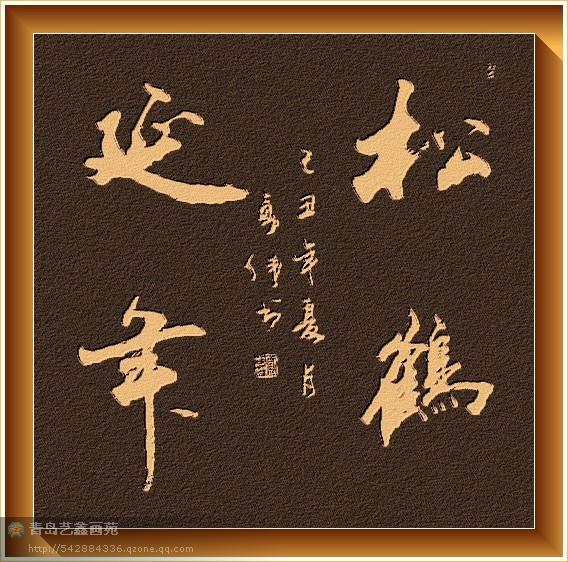 松鹤
延年
乙丑年夏月
高伟书
青岛艺鑫画苑
http://542884336.qzone.qq.com